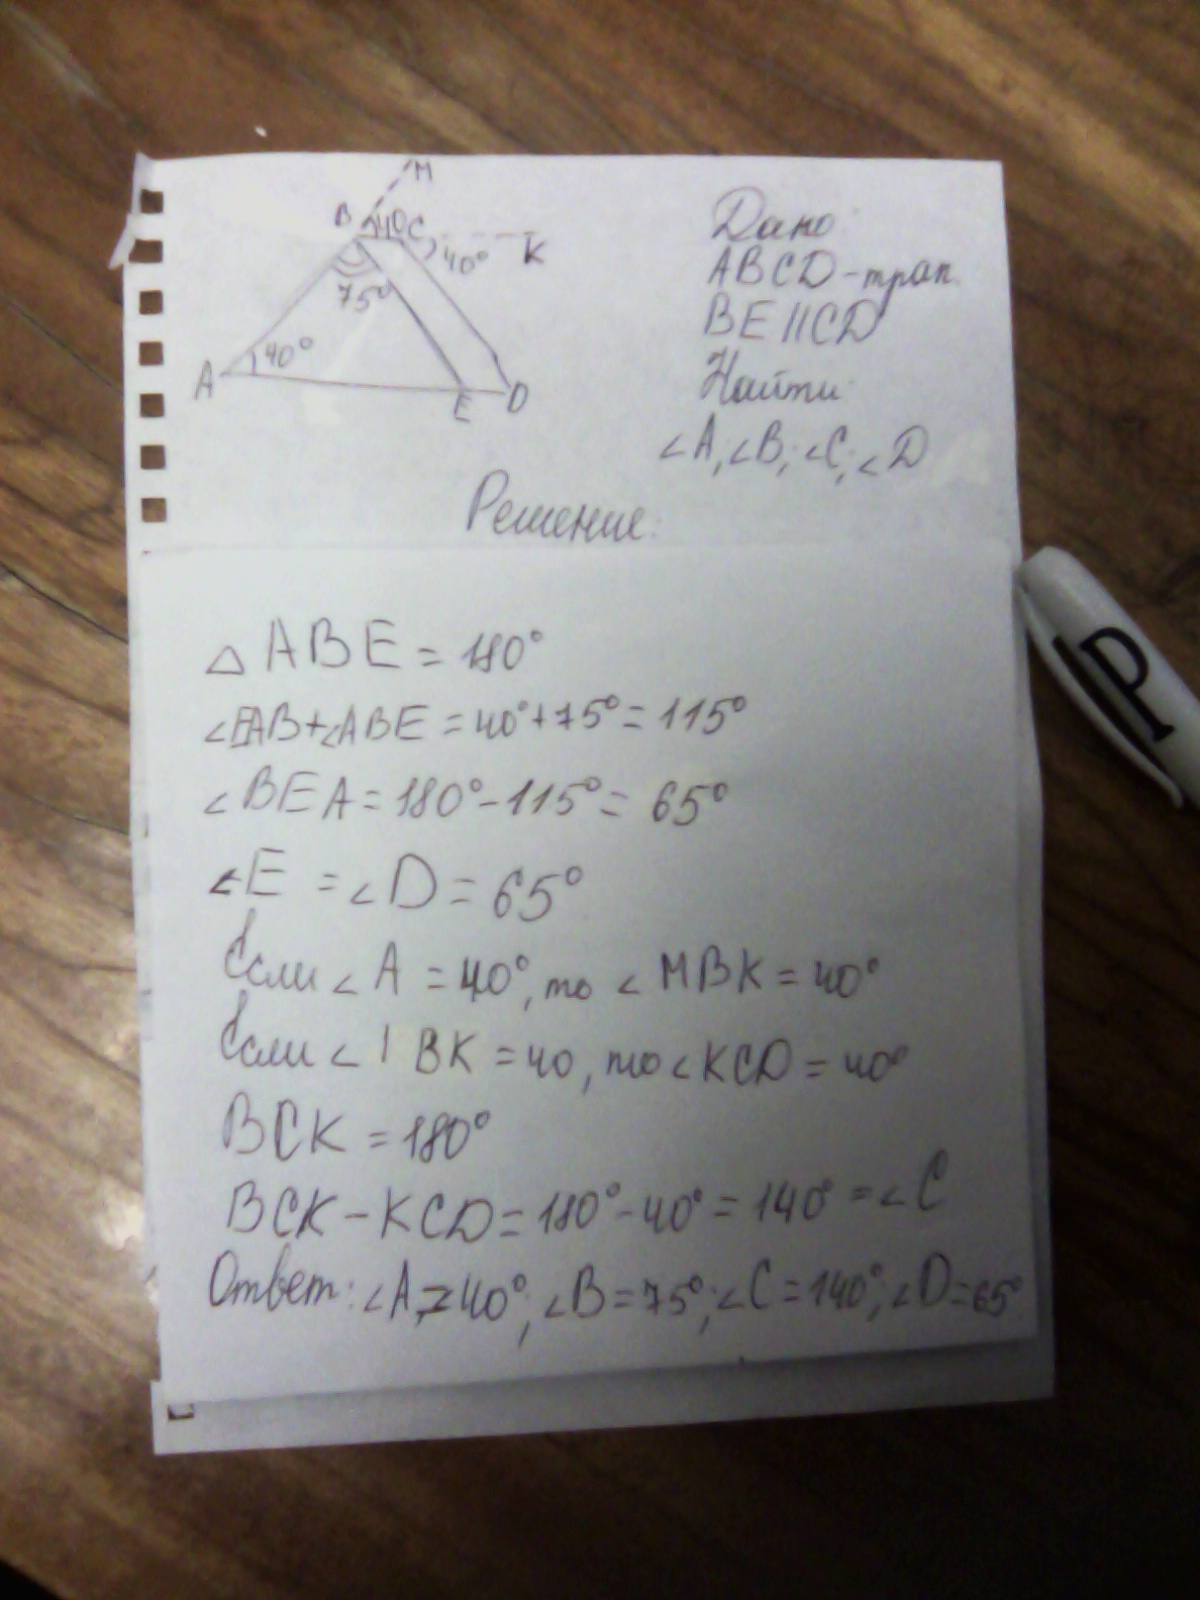 M
B 40° C
40° K
75°
A 40°
E D
Дано:
ABCD-трап.
BE||CD
Найти:
∠A, ∠B, ∠C, ∠D
Решение:
△ ABE = 180°
∠EAB+∠ABE = 40°+75°= 115°
∠BEA = 180°-115°= 65°
∠E = ∠D = 65°
Если ∠A = 40°, то ∠MBK = 40°
Если ∠ BK = 40, то ∠KCD = 40°
BCK = 180°
BCK - KCD = 180°-40° = 140° = ∠C
Ответ: ∠A = 40°; ∠B = 75°; ∠C = 140°; ∠D = 65°
P